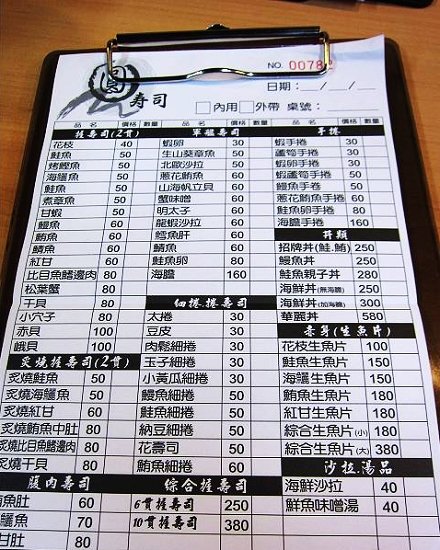 NO. 0078
圓壽司
日期：__/__/__
□內用 □外帶 桌號：
品名 價格 數量 品名 價格 數量 品名 價格 數量
握壽司(2貫)
花枝 40
鮭魚 50
烤鰹魚 50
海鱺魚 50
鮭魚 50
煮章魚 50
甘蝦 50
鰻魚 60
鮪魚 60
鯖魚 60
紅甘 60
比目魚鰭邊肉 80
松葉蟹 80
干貝 80
小穴子 80
赤貝 100
峨貝 100
炙燒握壽司(2貫)
炙燒鮭魚 50
炙燒海鱺魚 50
炙燒紅甘 60
炙燒鮪魚中肚 80
炙燒比目魚鰭邊肉 80
炙燒干貝 80
腹肉壽司
魚肚 60
鱺魚 70
甘肚 80
軍艦壽司
蝦卵 30
生山葵章魚 30
北歐沙拉 30
蔥花鮪魚 60
山海帆立貝 60
蟹味噌 60
明太子 60
龍蝦沙拉 60
鱈魚肝 60
鯖魚 60
鮭魚卵 80
海膽 160
細捲.捲壽司
太捲 30
豆皮 30
肉鬆細捲 30
玉子細捲 30
小黃瓜細捲 30
鰻魚細捲 50
鮭魚細捲 50
納豆細捲 50
花壽司 50
鮪魚細捲 60
綜合握壽司
6貫握壽司 250
10貫握壽司 380
手捲
蝦手捲 30
蘆筍手捲 30
蝦卵手捲 30
鰻魚手捲 60
蔥花鮪魚手捲 60
鮭魚卵手捲 80
海膽手捲 160
丼類
招牌丼(鮭.鮪) 250
鰻魚丼 250
鮭魚親子丼 280
海鮮丼(無海膽) 250
海鮮丼(加海膽) 300
華麗丼 580
刺身(生魚片)
花枝生魚片 100
鮭魚生魚片 150
海鱺生魚片 150
鮪魚生魚片 180
紅甘生魚片 180
綜合生魚片(小) 180
綜合生魚片(大) 380
沙拉.湯品
海鮮沙拉 40
鮮魚味噌湯 40